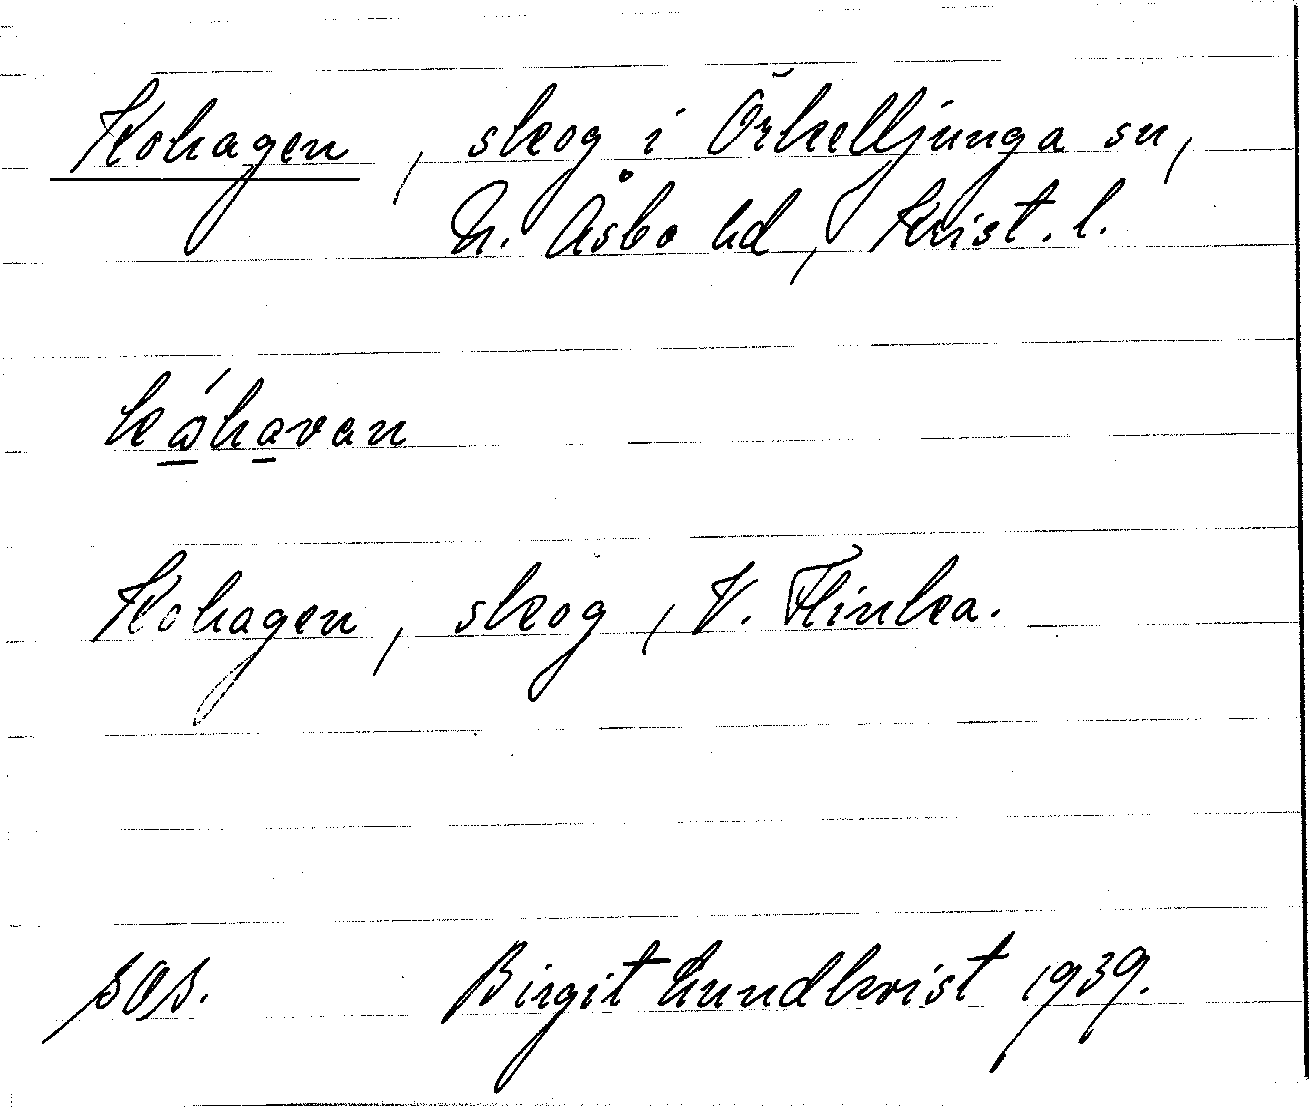 Kohagen, skog i Örkelljunga sn,
N. Åsbo hd, Krist. l.
kåhavan
Kohagen, skog, V. Flinka.
Birgit Lundkvist 1939.